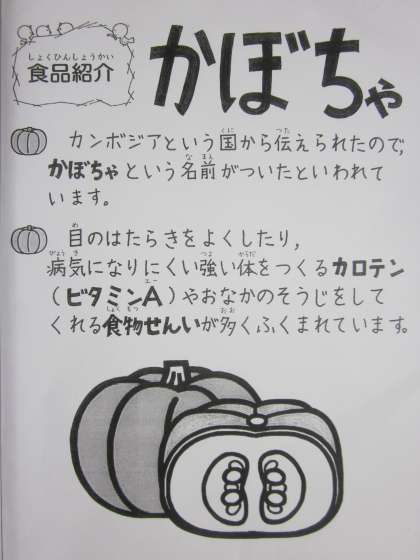 しょくひんしょうかい
食品紹介
かぼちゃ
カンボジアという国から伝えられたので,
かぼちゃという名前がついたといわれて
います。
目のはたらきをよくしたり,
病気になりにくい強い体をつくるカロテン
(ビタミンA)やおなかのそうじをして
くれる食物せんいが多くふくまれています。